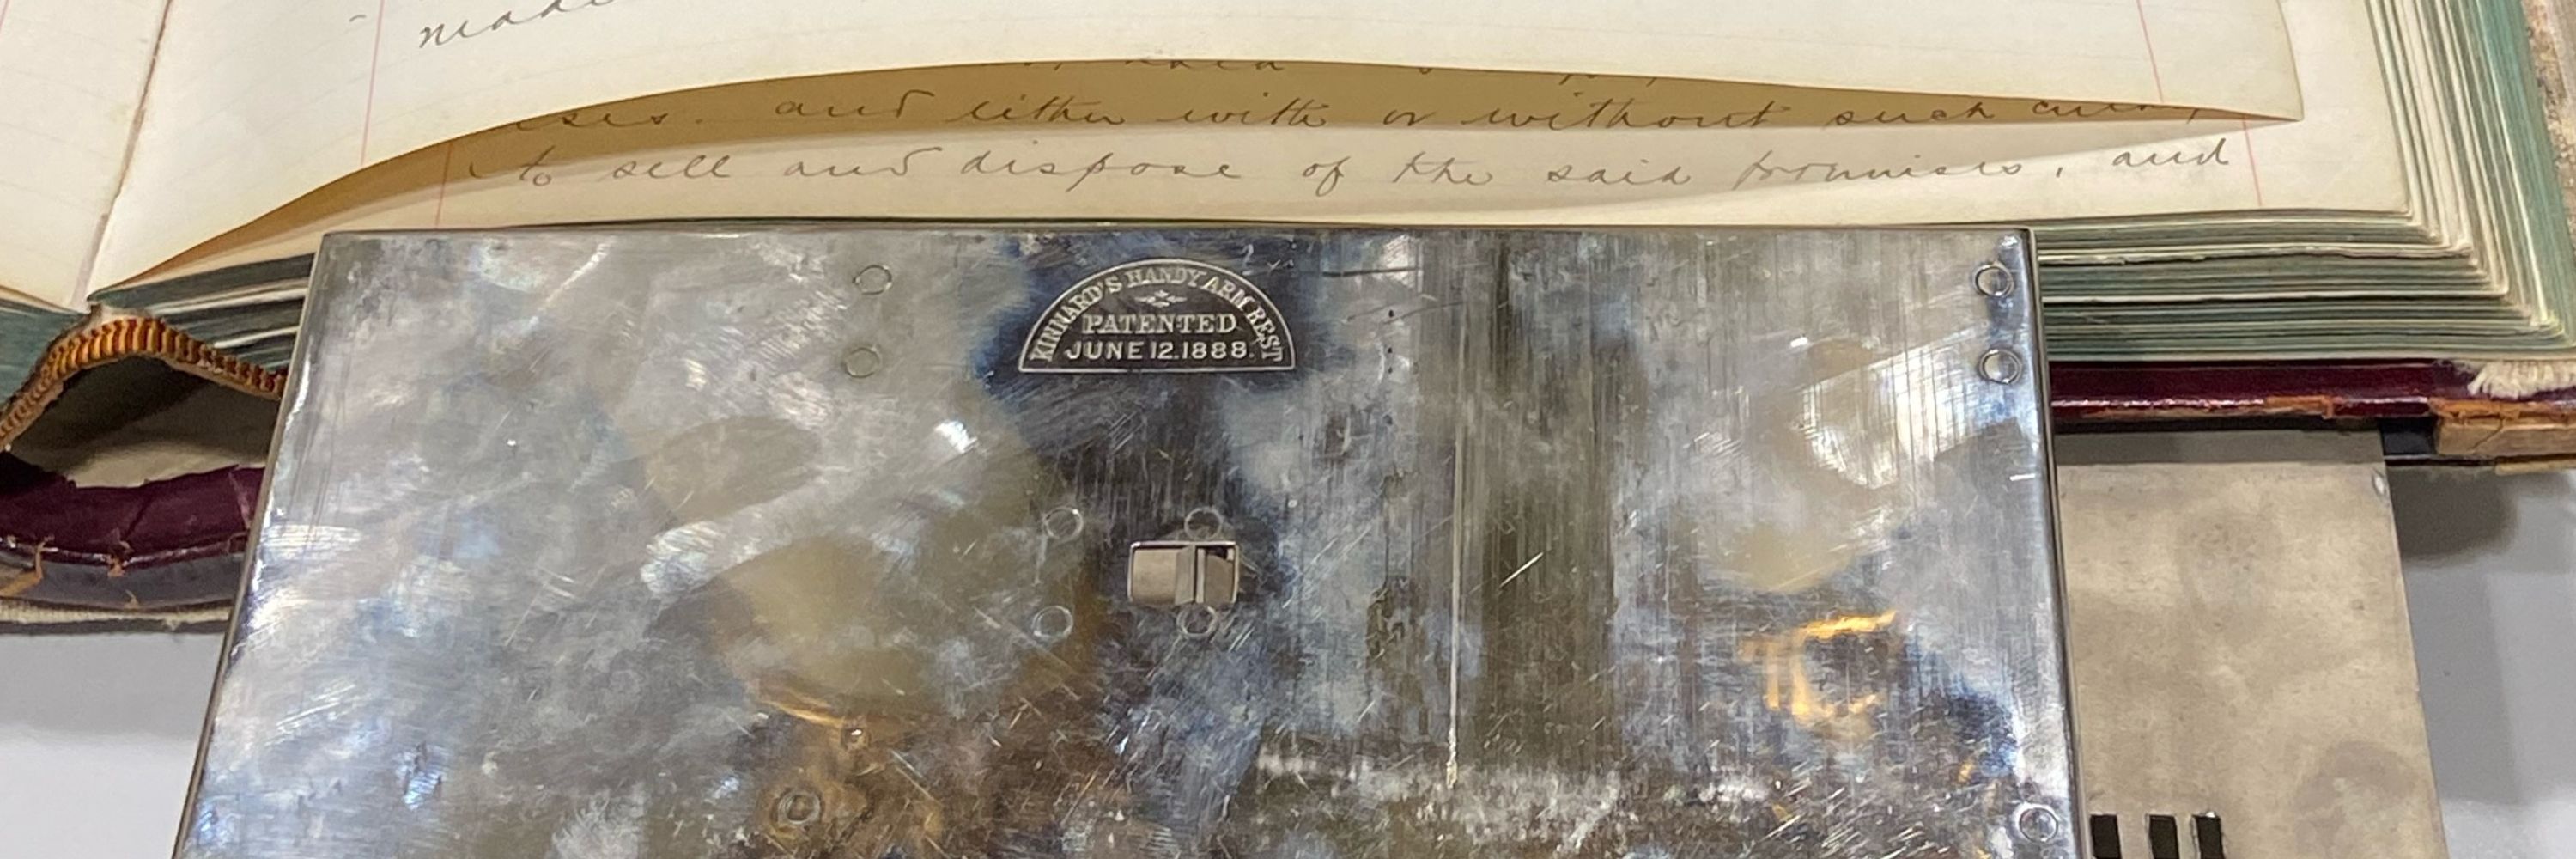 and either with or without such
to sell and dispose of the said premises, and
KINNARD'S HANDY ARM REST
PATENTED
JUNE 12.1888.